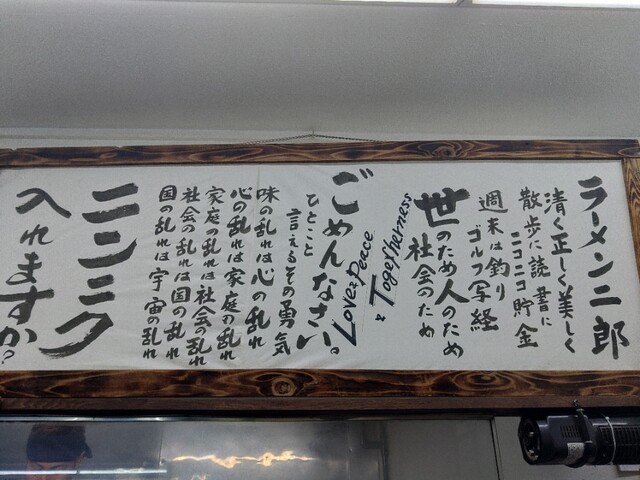 ラーメン二郎
清く正しく美しく
散歩に読書に
ニコニコ貯金
週末は釣り
ゴルフ写経
世のため人のため
社会のため
Love & Peace
& Togetherness
ごめんなさい。
ひとこと
言えるその勇気
味の乱れは心の乱れ
心の乱れは家庭の乱れ
家庭の乱れは社会の乱れ
社会の乱れは国の乱れ
国の乱れは宇宙の乱れ
ニンニク
入れますか?